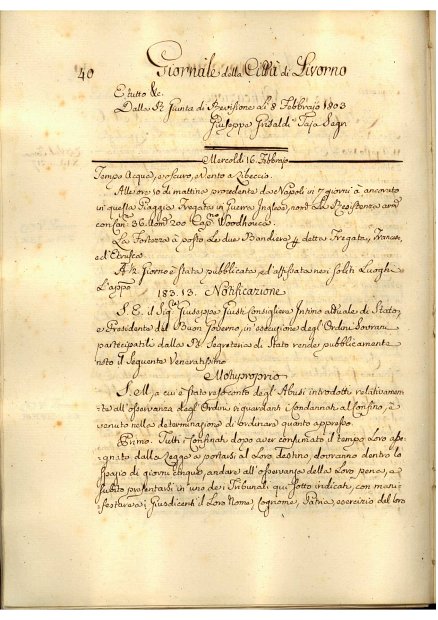 40 Giornale della Città di Livorno
E tutto &c.
Dalla Rl. Giunta di Revisione li 8 Febbrajo 1803
Giuseppe Grisaldi Taja Segr.
Mercoldì 16. Febbrajo
Tempo Acqua, e oscuro, e Vento a Libeccio.
Alle ore 10 di mattina procedente da Napoli in 7 giorni è ancorato
in questa Spiaggia Fregata in Guerra Inglese, nom.
con Can. 36 Uom. 200 Cap.no Woodhouca.
La Fortezza à posto le due Bandiere detta Fregata, Francese,
ed Etrusca.
A Giorno è stata pubblicata, ed affissata nei soliti Luoghi
L'appo. 183.13. Notificazione
S. E. il Sig. Giuseppe Giusti Consigliere Intimo attuale di Stato,
e Presidente del Buon Governo, in esecuzione degl'Ordini Sovrani
partecipatili dalla Rl. Segreteria di Stato rende pubblicamente
noto il seguente Veneratissimo
Motuproprio
S. M. a cui è stato reso conto degl'Abusi introdotti relativamen-
te all'osservanza degl'Ordini riguardanti i Condannati al Confino, è
venuto nella determinazione di ordinare quanto appresso.
Primo. Tutti i Confinati dopo aver consumato il tempo Loro asse-
gnato dalla Legge a portarsi al Loro destino, dovranno dentro lo
spazio di giorni cinque, andare all'osservanza della Loro pena, e
subito presentarsi in uno dei Tribunali qui sotto indicati, con mani-
festare ai Giusdicenti il Loro Nome, Cognome, Patria, esercizio del loro